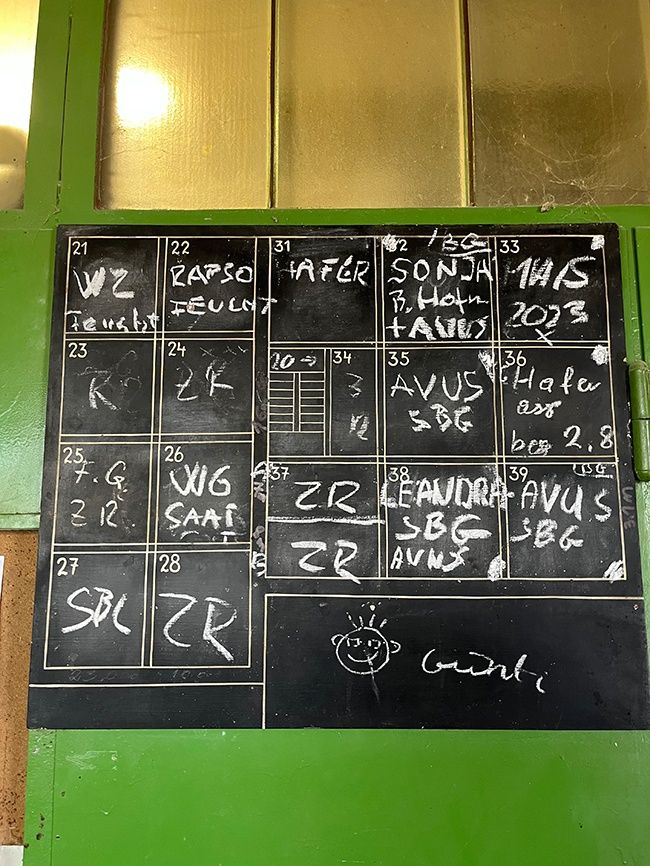 21
WZ
Feucht
22
RAPSO
FEUCHT
31
HAFER
32
SBG
SONJA
+AVUS
33
2023
23
R
24
ZR
20→
34
3
12
35
AVUS
SBG
36
Hafer
2.8
25
F.G
ZR
26
WG
SAAT
37
ZR
ZR
38
LEANDRA
SBG
AVUS
39
AVUS
SBG
27
SBG
28
ZR